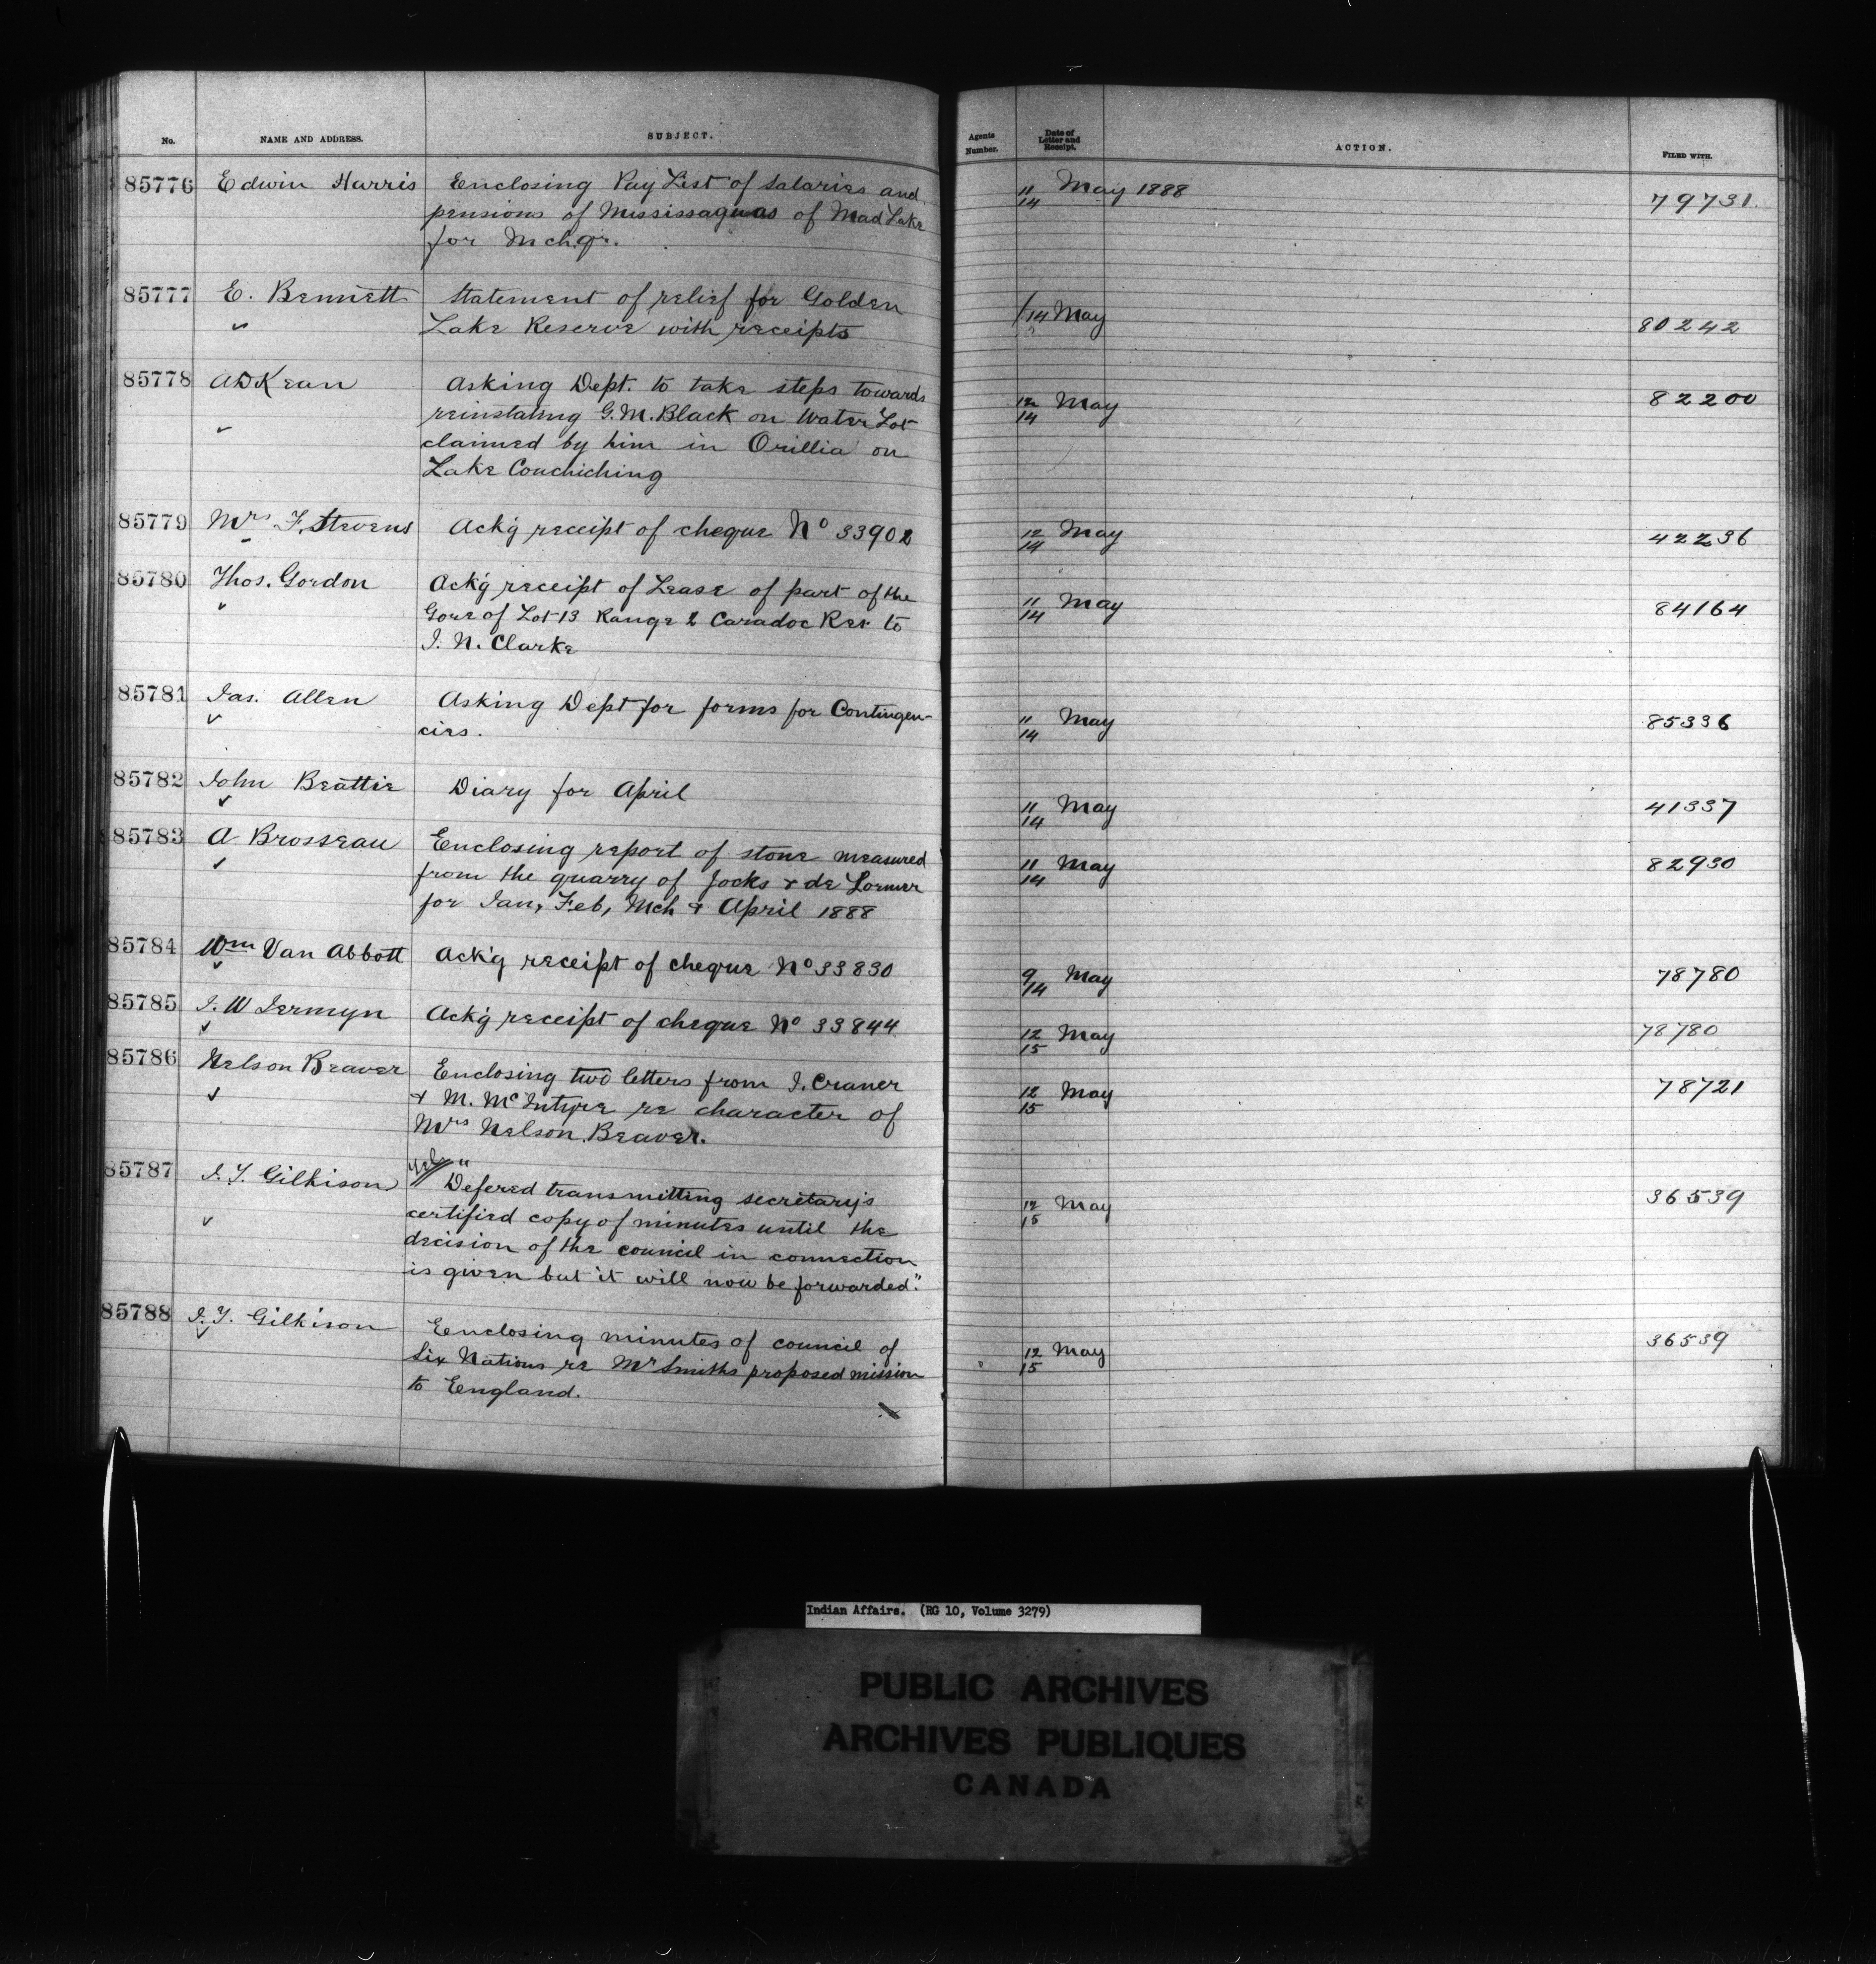 No. NAME AND ADDRESS. SUBJECT. Agents Number. Date of Letter and Receipt. ACTION. FILED WITH.
85776 Edwin Harris Enclosing Pay List of Salaries and 11/14 May 1888 79731
pensions of Mississaguas of Mud Lake
for Mch qr.
85777 E. Bennett Statement of relief for Golden /14 May 80242
Lake Reserve with receipts
85778 A D Kean Asking Dept. to take steps towards 12/14 May 82200
reinstating G. M. Black on Water Lot
claimed by him in Orillia on
Lake Couchiching
85779 Mrs F. Stevens Ack'g receipt of cheque No 33902 12/14 May 42236
85780 Thos. Gordon Ack'g receipt of Lease of part of the 11/14 May 84164
Gore of Lot 13 Range 2 Caradoc Res to
J. N. Clarke
85781 Jas. Allen Asking Dept for forms for Contingen- 11/14 May 85336
cies.
85782 John Beattie Diary for April 11/14 May 41337
85783 A Brosseau Enclosing report of stone measured 11/14 May 82930
from the quarry of Jocks & de Lormer
for Jan, Feb, Mch & April 1888
85784 Wm Van Abbott Ack'g receipt of cheque No 33830 9/14 May 78780
85785 J. W Jermyn Ack'g receipt of cheque No 33844 12/15 May 78780
85786 Nelson Beaver Enclosing two letters from J. Craner 12/15 May 78721
& M. McIntyre re character of
Mrs Nelson Beaver.
85787 J. T. Gilkison "Defered transmitting secretary's 12/15 May 36539
certified copy of minutes until the
decision of the council in connection
is given but it will now be forwarded."
85788 J. T. Gilkison Eenclosing minutes of council of 12/15 May 36539
Six Nations re Mr Smiths proposed mission
to Eengland.
Indian Affairs. (RG 10, Volume 3279)
PUBLIC ARCHIVES
ARCHIVES PUBLIQUES
CANADA